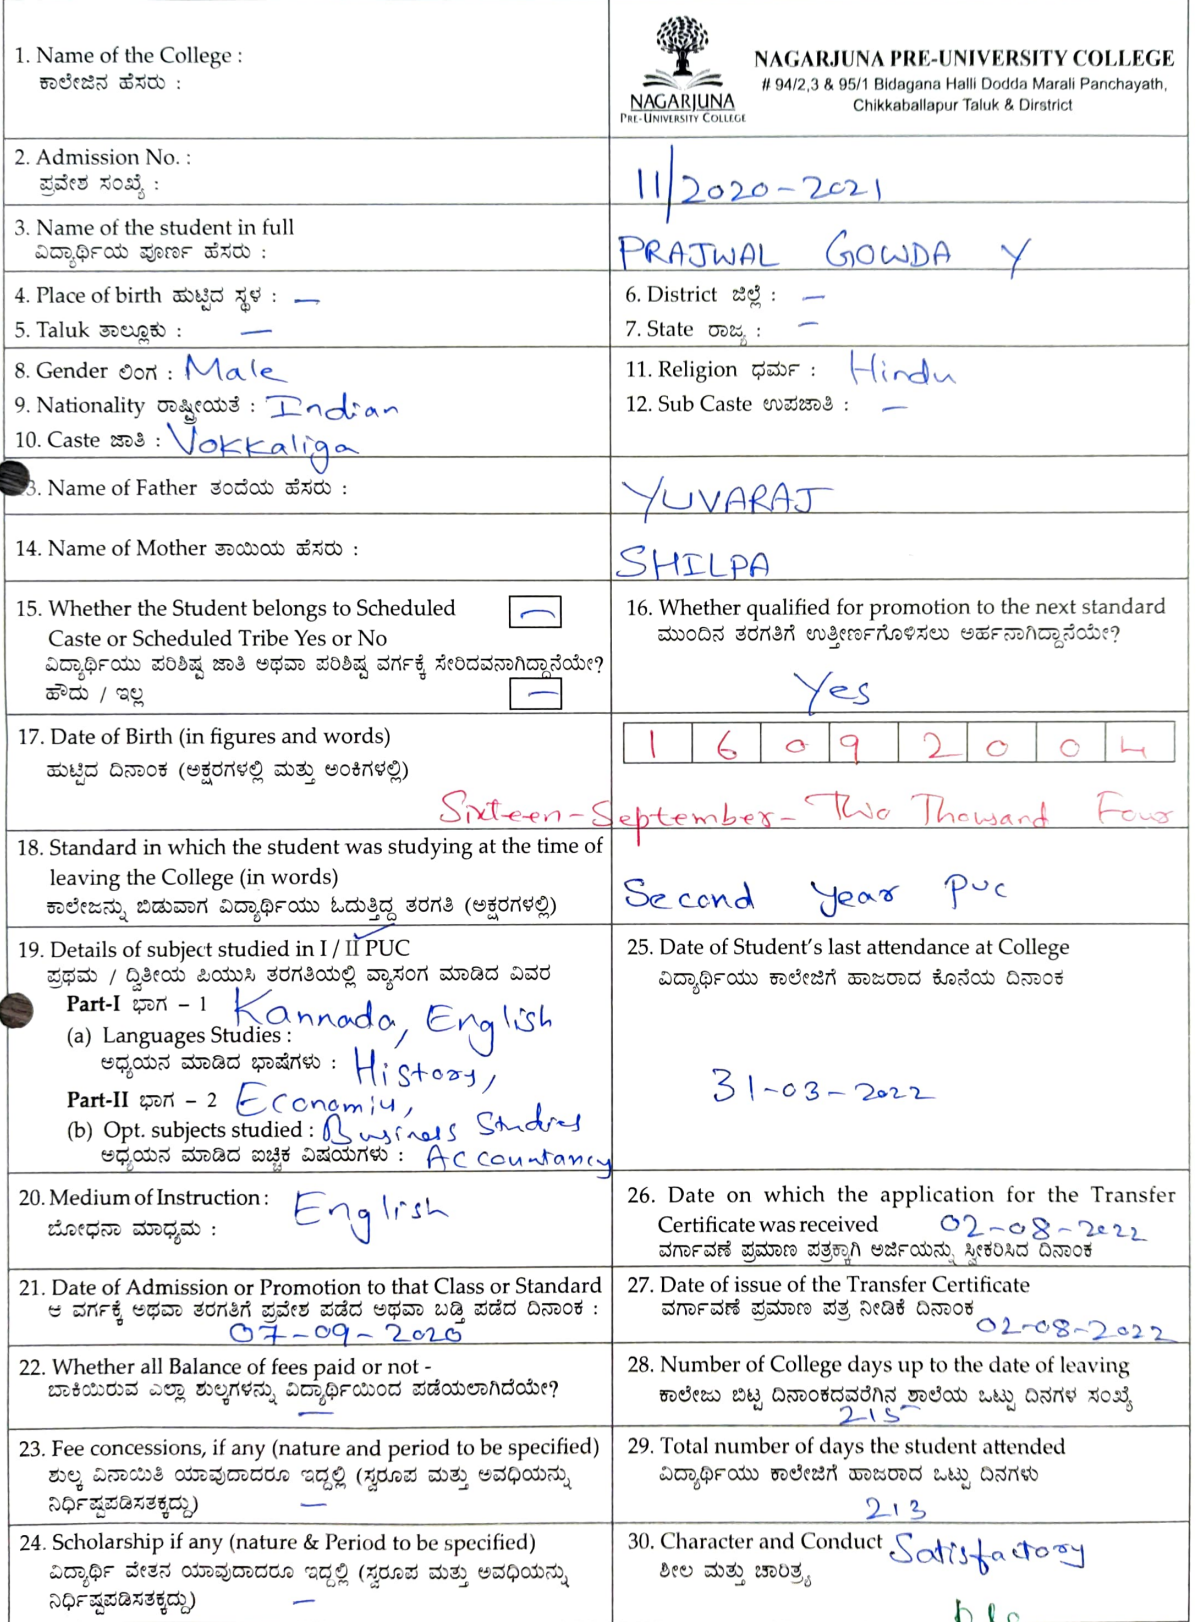 1. Name of the College :
ಕಾಲೇಜಿನ ಹೆಸರು :
NAGARJUNA
PRE-UNIVERSITY COLLEGE
NAGARJUNA PRE-UNIVERSITY COLLEGE
# 94/2,3 & 95/1 Bidagana Halli Dodda Marali Panchayath,
Chikkaballapur Taluk & Dirstrict
2. Admission No. :
ಪ್ರವೇಶ ಸಂಖ್ಯೆ :
11/2020-2021
3. Name of the student in full
ವಿದ್ಯಾರ್ಥಿಯ ಪೂರ್ಣ ಹೆಸರು :
PRAJWAL GOWDA Y
4. Place of birth ಹುಟ್ಟಿದ ಸ್ಥಳ : —
5. Taluk ತಾಲ್ಲೂಕು : —
6. District ಜಿಲ್ಲೆ : —
7. State ರಾಜ್ಯ : —
8. Gender ಲಿಂಗ : Male
9. Nationality ರಾಷ್ಟ್ರೀಯತೆ : Indian
10. Caste ಜಾತಿ : Vokkaliga
11. Religion ಧರ್ಮ : Hindu
12. Sub Caste ಉಪಜಾತಿ : —
3. Name of Father ತಂದೆಯ ಹೆಸರು :
YUVARAJ
14. Name of Mother ತಾಯಿಯ ಹೆಸರು :
SHILPA
15. Whether the Student belongs to Scheduled —
Caste or Scheduled Tribe Yes or No
ವಿದ್ಯಾರ್ಥಿಯು ಪರಿಶಿಷ್ಟ ಜಾತಿ ಅಥವಾ ಪರಿಶಿಷ್ಟ ವರ್ಗಕ್ಕೆ ಸೇರಿದವನಾಗಿದ್ದಾನೆಯೇ?
ಹೌದು / ಇಲ್ಲ —
16. Whether qualified for promotion to the next standard
ಮುಂದಿನ ತರಗತಿಗೆ ಉತ್ತೀರ್ಣಗೊಳಿಸಲು ಅರ್ಹನಾಗಿದ್ದಾನೆಯೇ?
Yes
17. Date of Birth (in figures and words)
ಹುಟ್ಟಿದ ದಿನಾಂಕ (ಅಕ್ಷರಗಳಲ್ಲಿ ಮತ್ತು ಅಂಕಿಗಳಲ್ಲಿ)
1 6 0 9 2 0 0 4
Sixteen-September-Two Thousand Four
18. Standard in which the student was studying at the time of
leaving the College (in words)
ಕಾಲೇಜನ್ನು ಬಿಡುವಾಗ ವಿದ್ಯಾರ್ಥಿಯು ಓದುತ್ತಿದ್ದ ತರಗತಿ (ಅಕ್ಷರಗಳಲ್ಲಿ)
Second year PUC
19. Details of subject studied in I / II PUC
ಪ್ರಥಮ / ದ್ವಿತೀಯ ಪಿಯುಸಿ ತರಗತಿಯಲ್ಲಿ ವ್ಯಾಸಂಗ ಮಾಡಿದ ವಿವರ
Part-I ಭಾಗ – 1 Kannada, English
(a) Languages Studies :
ಅಧ್ಯಯನ ಮಾಡಿದ ಭಾಷೆಗಳು : History,
Part-II ಭಾಗ – 2 Economic,
(b) Opt. subjects studied : Business Studies
ಅಧ್ಯಯನ ಮಾಡಿದ ಐಚ್ಛಿಕ ವಿಷಯಗಳು : Accountancy
25. Date of Student's last attendance at College
ವಿದ್ಯಾರ್ಥಿಯು ಕಾಲೇಜಿಗೆ ಹಾಜರಾದ ಕೊನೆಯ ದಿನಾಂಕ
31-03-2022
20. Medium of Instruction : English
ಬೋಧನಾ ಮಾಧ್ಯಮ :
26. Date on which the application for the Transfer
Certificate was received 02-08-2022
ವರ್ಗಾವಣೆ ಪ್ರಮಾಣ ಪತ್ರಕ್ಕಾಗಿ ಅರ್ಜಿಯನ್ನು ಸ್ವೀಕರಿಸಿದ ದಿನಾಂಕ
21. Date of Admission or Promotion to that Class or Standard
ಆ ವರ್ಗಕ್ಕೆ ಅಥವಾ ತರಗತಿಗೆ ಪ್ರವೇಶ ಪಡೆದ ಅಥವಾ ಬಡ್ತಿ ಪಡೆದ ದಿನಾಂಕ :
07-09-2020
27. Date of issue of the Transfer Certificate
ವರ್ಗಾವಣೆ ಪ್ರಮಾಣ ಪತ್ರ ನೀಡಿಕೆ ದಿನಾಂಕ
02-08-2022
22. Whether all Balance of fees paid or not -
ಬಾಕಿಯಿರುವ ಎಲ್ಲಾ ಶುಲ್ಕಗಳನ್ನು ವಿದ್ಯಾರ್ಥಿಯಿಂದ ಪಡೆಯಲಾಗಿದೆಯೇ?
—
28. Number of College days up to the date of leaving
ಕಾಲೇಜು ಬಿಟ್ಟ ದಿನಾಂಕದವರೆಗಿನ ಶಾಲೆಯ ಒಟ್ಟು ದಿನಗಳ ಸಂಖ್ಯೆ
215
23. Fee concessions, if any (nature and period to be specified)
ಶುಲ್ಕ ವಿನಾಯಿತಿ ಯಾವುದಾದರೂ ಇದ್ದಲ್ಲಿ (ಸ್ವರೂಪ ಮತ್ತು ಅವಧಿಯನ್ನು
ನಿರ್ಧಿಷ್ಟಪಡಿಸತಕ್ಕದ್ದು) —
29. Total number of days the student attended
ವಿದ್ಯಾರ್ಥಿಯು ಕಾಲೇಜಿಗೆ ಹಾಜರಾದ ಒಟ್ಟು ದಿನಗಳು
213
24. Scholarship if any (nature & Period to be specified)
ವಿದ್ಯಾರ್ಥಿ ವೇತನ ಯಾವುದಾದರೂ ಇದ್ದಲ್ಲಿ (ಸ್ವರೂಪ ಮತ್ತು ಅವಧಿಯನ್ನು
ನಿರ್ಧಿಷ್ಟಪಡಿಸತಕ್ಕದ್ದು) —
30. Character and Conduct Satisfactory
ಶೀಲ ಮತ್ತು ಚಾರಿತ್ರ್ಯ